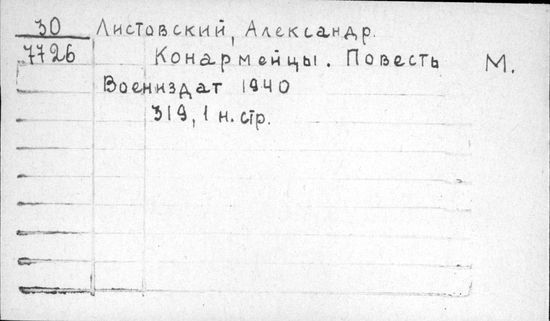 30 Листовский, Александр.
7726 Конармейцы. Повесть М.
Воениздат 1940
319, 1 н. стр.